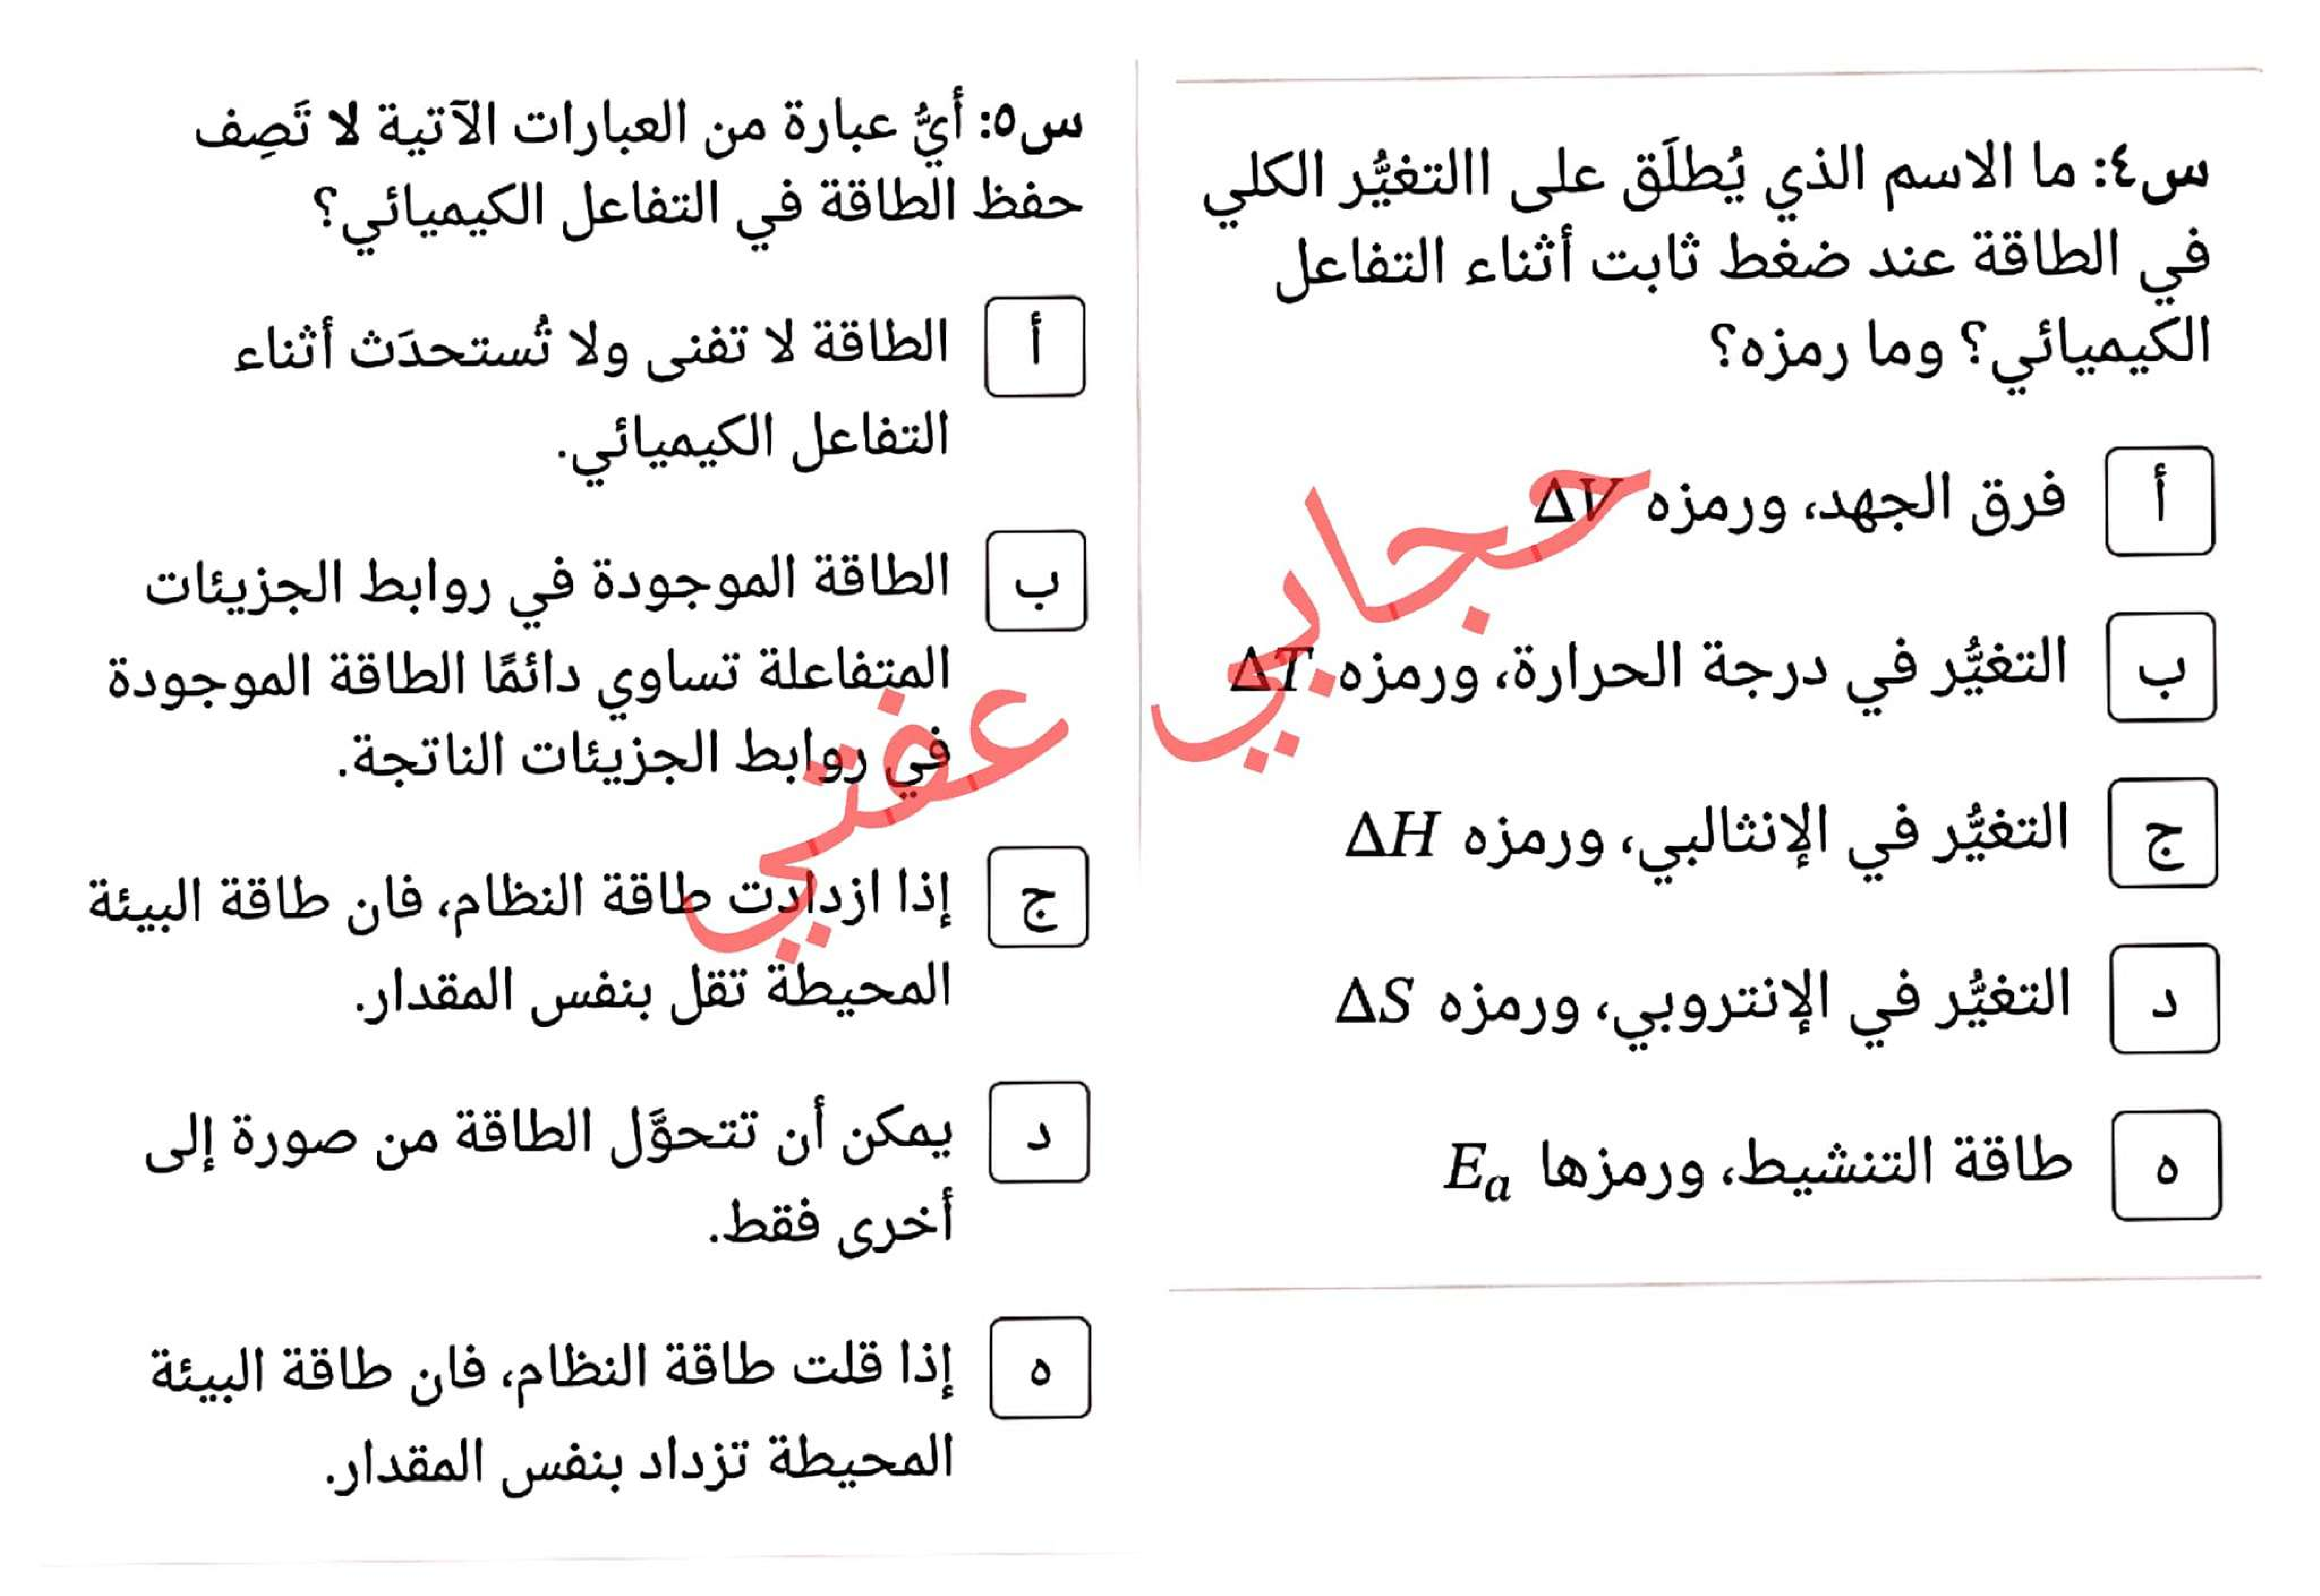 س٤: ما الاسم الذي يُطلَق على االتغيُّر الكلي
في الطاقة عند ضغط ثابت أثناء التفاعل
الكيميائي؟ وما رمزه؟
أ فرق الجهد، ورمزه ΔV
ب التغيُّر في درجة الحرارة، ورمزه ΔT
ج التغيُّر في الإنثالبي، ورمزه ΔH
د التغيُّر في الإنتروبي، ورمزه ΔS
ه طاقة التنشيط، ورمزها Eₐ
س٥: أيُّ عبارة من العبارات الآتية لا تَصِف
حفظ الطاقة في التفاعل الكيميائي؟
أ الطاقة لا تفنى ولا تُستحدَث أثناء
التفاعل الكيميائي.
ب الطاقة الموجودة في روابط الجزيئات
المتفاعلة تساوي دائمًا الطاقة الموجودة
في روابط الجزيئات الناتجة.
ج إذا ازدادت طاقة النظام، فان طاقة البيئة
المحيطة تقل بنفس المقدار.
د يمكن أن تتحوَّل الطاقة من صورة إلى
أخرى فقط.
ه إذا قلت طاقة النظام، فان طاقة البيئة
المحيطة تزداد بنفس المقدار.
حجابي
عفتي